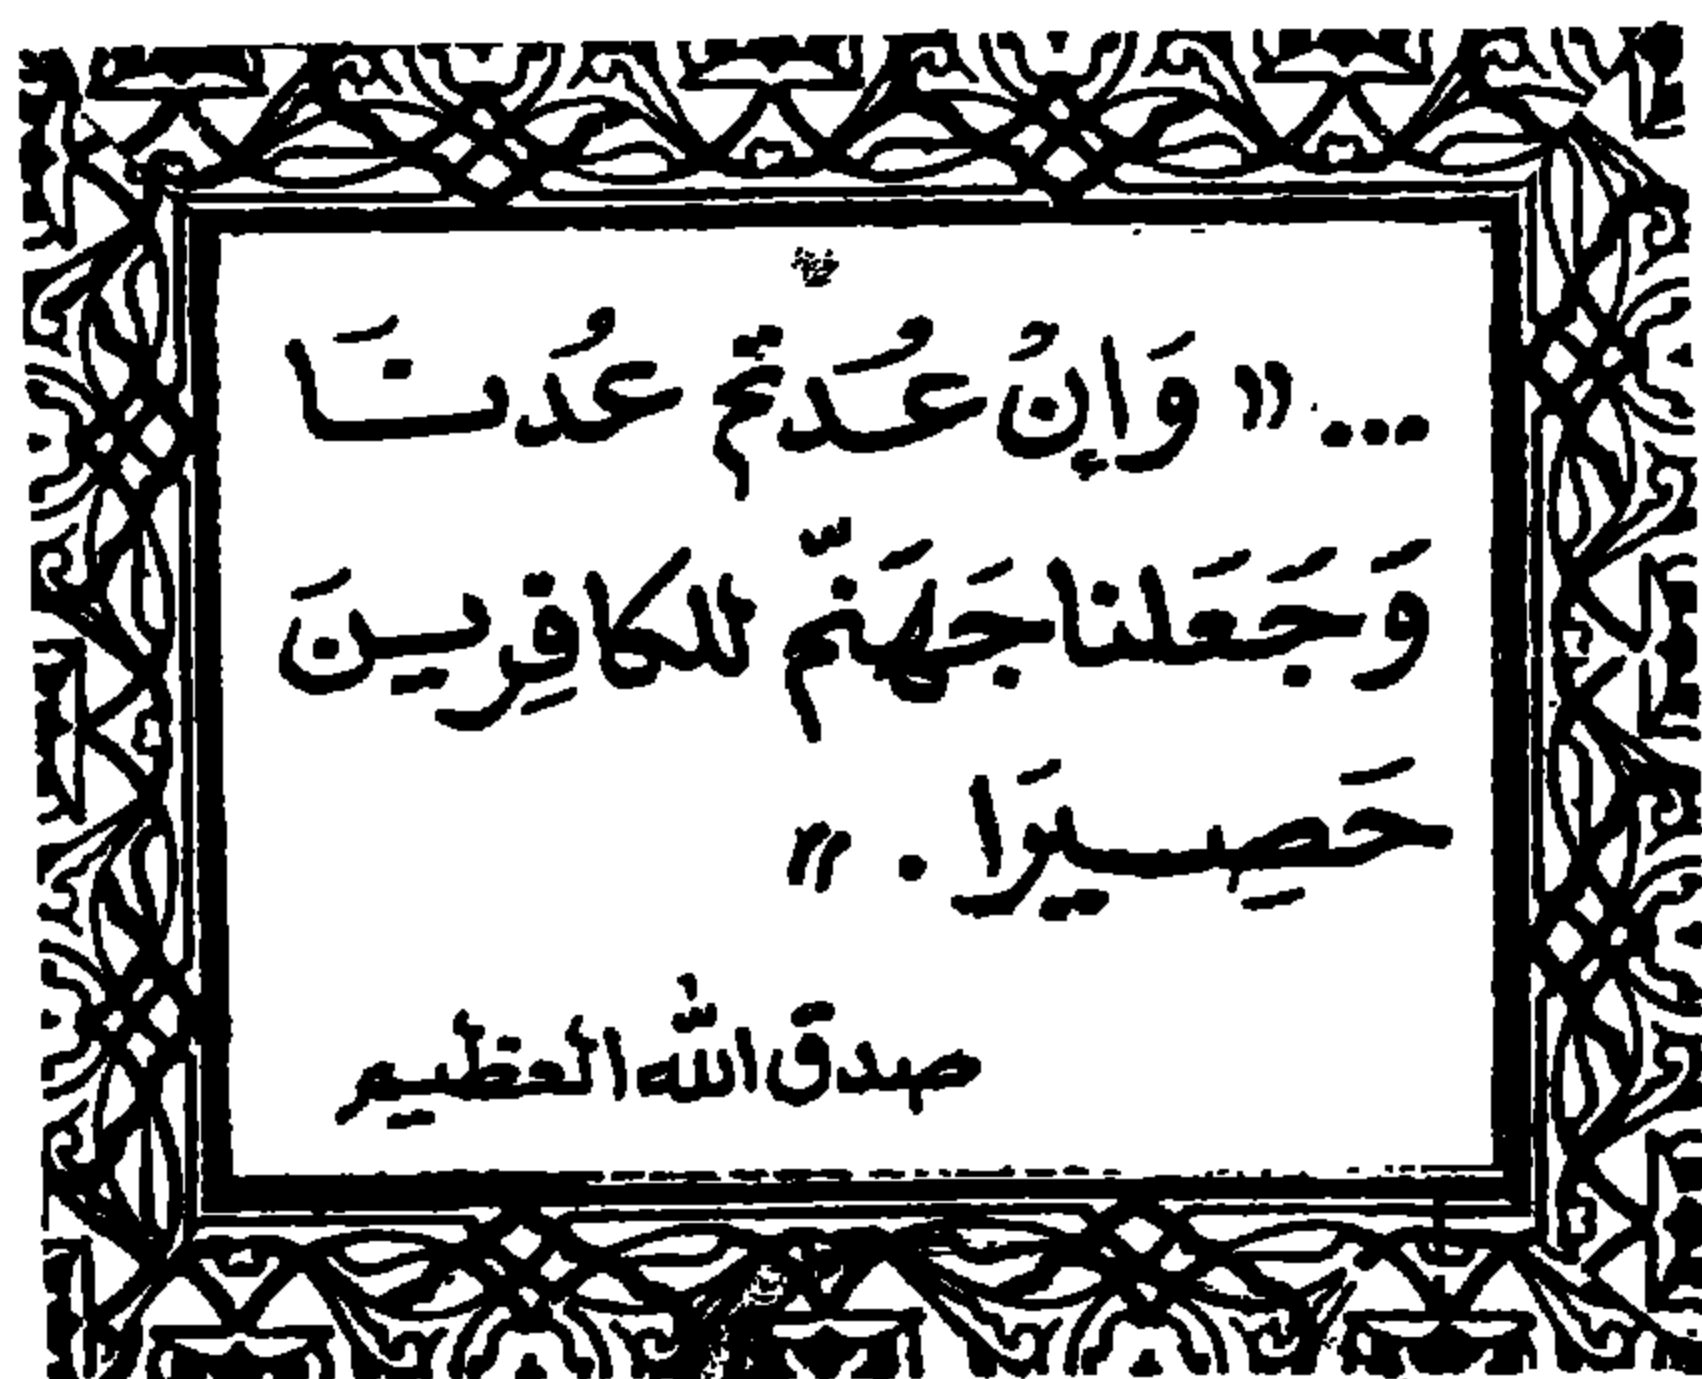 ... « وَإِنْ عُدتم عُدنَا
وَجَعَلنا جَهَنّم للكافِرِينَ
حَصِيرَا . »
صدق الله العظيم